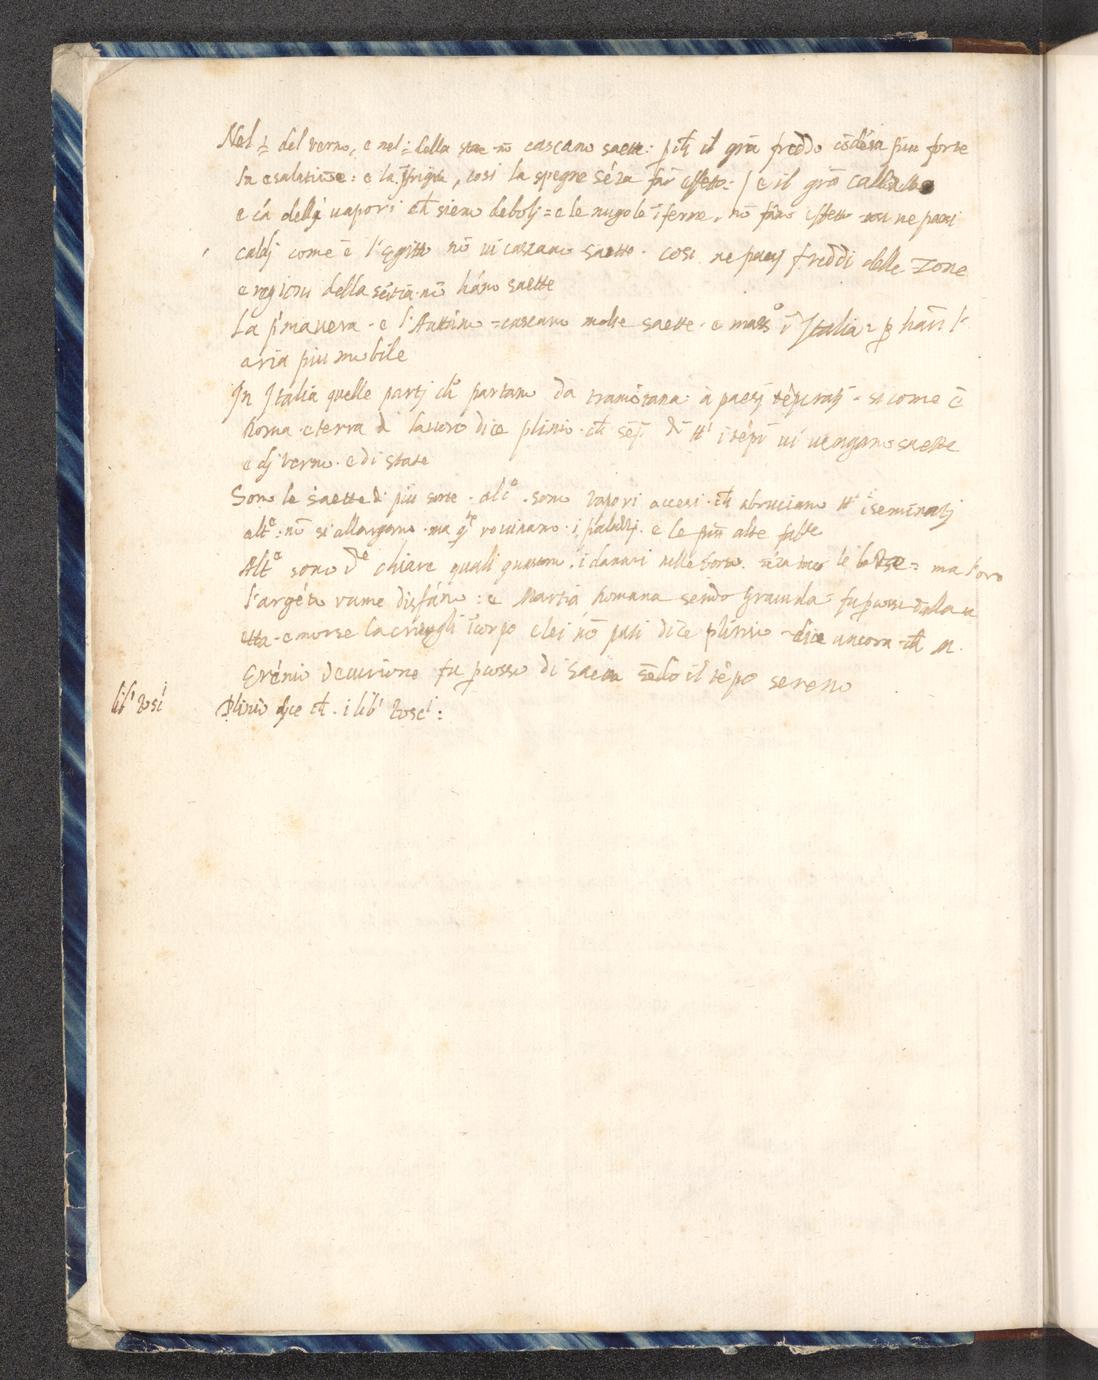 Nel ½ del verno, e nel ½ della state nō cascano saette: ꝑ ch̄ il grā freddo cōdēsa piu forte
la esalatiōe: e la frigita, cosi la spegne sēza far effetto: / e il grā caldo
e cā della uapori ch̄ sieno debolj = e le nugole īferne, nō fāno effetto cosi ne paesi
caldj come ē l'Egitto nō ui cascano saette. cosi ne paesj freddi delle zone
e regioni della scitia nō hāno saette
La p'mauera . e l'Autūno = cascano molte saette . e mass° ī Italia = ꝑ hau l'
aria piu mobile
In Italia quelle partj ch° partano da tramōtana : à paesj tēperatj - si come ē
Roma e terra di lauoro dice plinio . ch̄ ī tēpi ui uengano saette
e dj verno . e di state
Sono le saette di piu sorte . alt° . sono vapori accesi . ch̄ abruciano tt' i seminatj
alt° : nō si allargano . ma rouinano . i palazzj . e le piu alte
Alt° sono chiare quali guastano . i danari nelle borse . sēza le borse = ma l'oro
l'argēto rame disfāno : e Martia Romana sendo grauida fu ꝑcossa dalla sa
etta . e morse la crīatura ī corpo e lei nō pati dice plinio - dice ancora ch̄ M.
Erēnio decurione fu ꝑcosso di saetta sēdo il tēpo sereno
lib' tosci
Plinio dice ch̄ . i lib' tosci :